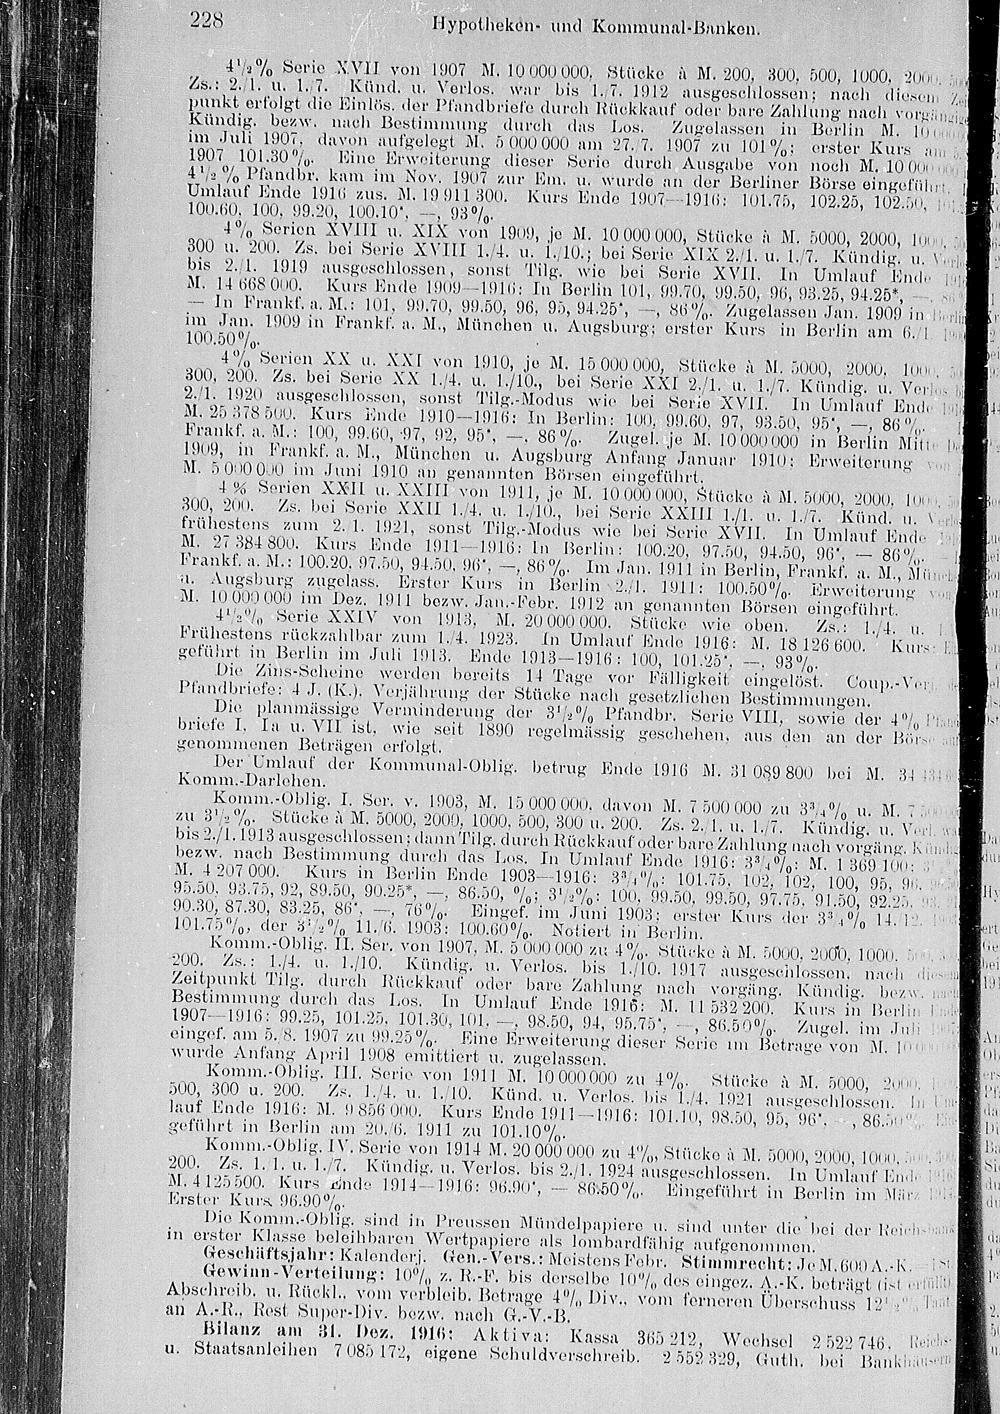 228 Hypotheken- und Kommunal-Banken.
4½% Serie XVII von 1907 M. 10 000 000, Stücke à M. 200, 300, 500, 1000, 2000,
Zs.: 2./1. u. 1./7. Künd. u. Verlos. war bis 1./7. 1912 ausgeschlossen; nach diesem
punkt erfolgt die Einlös. der Pfandbriefe durch Rückkauf oder bare Zahlung nach vorgängige
Kündig. bezw. nach Bestimmung durch das Los. Zugelassen in Berlin M.
im Juli 1907, davon aufgelegt M. 5 000 000 am 27./7. 1907 zu 101%; erster Kurs am
1907 101.30%. Eine Erweiterung dieser Serie durch Ausgabe von noch M. 10 000 000
4½% Pfandbr. kam im Nov. 1907 zur Em. u. wurde an der Berliner Börse eingeführt.
Umlauf Ende 1916 zus. M. 19 911 300. Kurs Ende 1907—1916: 101.75, 102.25, 102.50,
100.60, 100, 99.20, 100.10*, —, 93%.
4% Serien XVIII u. XIX von 1909, je M. 10 000 000, Stücke à M. 5000, 2000,
300 u. 200. Zs. bei Serie XVIII 1./4. u. 1./10.; bei Serie XIX 2./1. u. 1./7. Kündig. u.
bis 2./1. 1919 ausgeschlossen, sonst Tilg. wie bei Serie XVII. In Umlauf Ende
M. 14 668 000. Kurs Ende 1909—1916: In Berlin 101, 99.70, 99.50, 96, 93.25, 94.25*, —,
— In Frankf. a. M.: 101, 99.70, 99.50, 96, 95, 94.25*, —, 86%. Zugelassen Jan. 1909 in
im Jan. 1909 in Frankf. a. M., München u. Augsburg; erster Kurs in Berlin am 6./1.
100.50%.
4% Serien XX u. XXI von 1910, je M. 15 000 000, Stücke à M. 5000, 2000,
300, 200. Zs. bei Serie XX 1./4. u. 1./10., bei Serie XXI 2./1. u. 1./7. Kündig. u. Verlos
2./1. 1920 ausgeschlossen, sonst Tilg.-Modus wie bei Serie XVII. In Umlauf Ende
M. 25 378 500. Kurs Ende 1910—1916: In Berlin: 100, 99.60, 97, 93.50, 95*, —, 86%.
Frankf. a. M.: 100, 99.60, 97, 92, 95*, —, 86%. Zugel. je M. 10 000 000 in Berlin Mitte
1909, in Frankf. a. M., München u. Augsburg Anfang Januar 1910; Erweiterung von
M. 5 000 000 im Juni 1910 an genannten Börsen eingeführt.
4% Serien XXII u. XXIII von 1911, je M. 10 000 000, Stücke à M. 5000, 2000,
300, 200. Zs. bei Serie XXII 1./4. u. 1./10., bei Serie XXIII 1./1. u. 1./7. Künd. u.
frühestens zum 2./1. 1921, sonst Tilg.-Modus wie bei Serie XVII. In Umlauf Ende
M. 27 384 800. Kurs Ende 1911—1916: In Berlin: 100.20, 97.50, 94.50, 96*, — 86%.
Frankf. a. M.: 100.20, 97.50, 94.50, 96*, —, 86%. Im Jan. 1911 in Berlin, Frankf. a. M.,
u. Augsburg zugelass. Erster Kurs in Berlin 2./1. 1911: 100.50%. Erweiterung von
M. 10 000 000 im Dez. 1911 bezw. Jan.-Febr. 1912 an genannten Börsen eingeführt.
4½% Serie XXIV von 1913, M. 20 000 000. Stücke wie oben. Zs.: 1./4. u.
Frühestens rückzahlbar zum 1./4. 1923. In Umlauf Ende 1916: M. 18 126 600. Kurs:
geführt in Berlin im Juli 1913. Ende 1913—1916: 100, 101.25*, —, 93%.
Die Zins-Scheine werden bereits 14 Tage vor Fälligkeit eingelöst. Coup.-Verj.
Pfandbriefe: 4 J. (K.). Verjährung der Stücke nach gesetzlichen Bestimmungen.
Die planmässige Verminderung der 3½% Pfandbr. Serie VIII, sowie der 4%
briefe I, Ia u. VII ist, wie seit 1890 regelmässig geschehen, aus den an der Börse
genommenen Beträgen erfolgt.
Der Umlauf der Kommunal-Oblig. betrug Ende 1916 M. 31 089 800 bei M.
Komm.-Darlehen.
Komm.-Oblig. I. Ser. v. 1903, M. 15 000 000, davon M. 7 500 000 zu 3¾% u. M.
zu 3½%. Stücke à M. 5000, 2000, 1000, 500, 300 u. 200. Zs. 2./1. u. 1./7. Kündig. u.
bis 2./1. 1913 ausgeschlossen; dann Tilg. durch Rückkauf oder bare Zahlung nach vorgäng.
bezw. nach Bestimmung durch das Los. In Umlauf Ende 1916: 3¾%: M. 1 369 100;
M. 4 207 000. Kurs in Berlin Ende 1903—1916: 3¾%: 101.75, 102, 102, 100, 95, 96,
95.50, 93.75, 92, 89.50, 90.25*, —, 86.50, %; 3½%: 100, 99.50, 99.50, 97.75, 91.50, 92.25,
90.30, 87.30, 83.25, 86*, —, 76%. Eingef. im Juni 1903; erster Kurs der 3¾% 14./12.
101.75%, der 3½% 11./6. 1903: 100.60%. Notiert in Berlin.
Komm.-Oblig. II. Ser. von 1907, M. 5 000 000 zu 4%. Stücke à M. 5000, 2000, 1000,
200. Zs.: 1./4. u. 1./10. Kündig. u. Verlos. bis 1./10. 1917 ausgeschlossen, nach diesem
Zeitpunkt Tilg. durch Rückkauf oder bare Zahlung nach vorgäng. Kündig. bezw. nach
Bestimmung durch das Los. In Umlauf Ende 1916: M. 11 532 200. Kurs in Berlin Ende
1907—1916: 99.25, 101.25, 101.30, 101, —, 98.50, 94, 95.75*, —, 86.50%. Zugel. im Juli
eingef. am 5./8. 1907 zu 99.25%. Eine Erweiterung dieser Serie im Betrage von M.
wurde Anfang April 1908 emittiert u. zugelassen.
Komm.-Oblig. III. Serie von 1911 M. 10 000 000 zu 4%. Stücke à M. 5000, 2000,
500, 300 u. 200. Zs. 1./4. u. 1./10. Künd. u. Verlos. bis 1./4. 1921 ausgeschlossen. In
lauf Ende 1916: M. 9 856 000. Kurs Ende 1911—1916: 101.10, 98.50, 95, 96*, , 86.50%.
geführt in Berlin am 20./6. 1911 zu 101.10%.
Komm.-Oblig. IV. Serie von 1914 M. 20 000 000 zu 4%, Stücke à M. 5000, 2000, 1000,
200. Zs. 1./1. u. 1./7. Kündig. u. Verlos. bis 2./1. 1924 ausgeschlossen. In Umlauf Ende
M. 4 125 500. Kurs Ende 1914—1916: 96.90*, — 86.50%. Eingeführt in Berlin im März
Erster Kurs 96.90%.
Die Komm.-Oblig. sind in Preussen Mündelpapiere u. sind unter die bei der Reichsbank
in erster Klasse beleihbaren Wertpapiere als lombardfähig aufgenommen.
Geschäftsjahr: Kalenderj. Gen.-Vers.: Meistens Febr. Stimmrecht: Je M. 600 A.-K.
Gewinn-Verteilung: 10% z. R.-F. bis derselbe 10% des eingez. A.-K. beträgt (ist erfüllt)
Abschreib. u. Rückl., vom verbleib. Betrage 4% Div., vom ferneren Überschuss
an A.-R., Rest Super-Div. bezw. nach G.-V.-B.
Bilanz am 31. Dez. 1916: Aktiva: Kassa 365 212, Wechsel 2 522 746, Reichs-
u. Staatsanleihen 7 085 172, eigene Schuldverschreib. 2 552 329, Guth. bei Bankhäusern